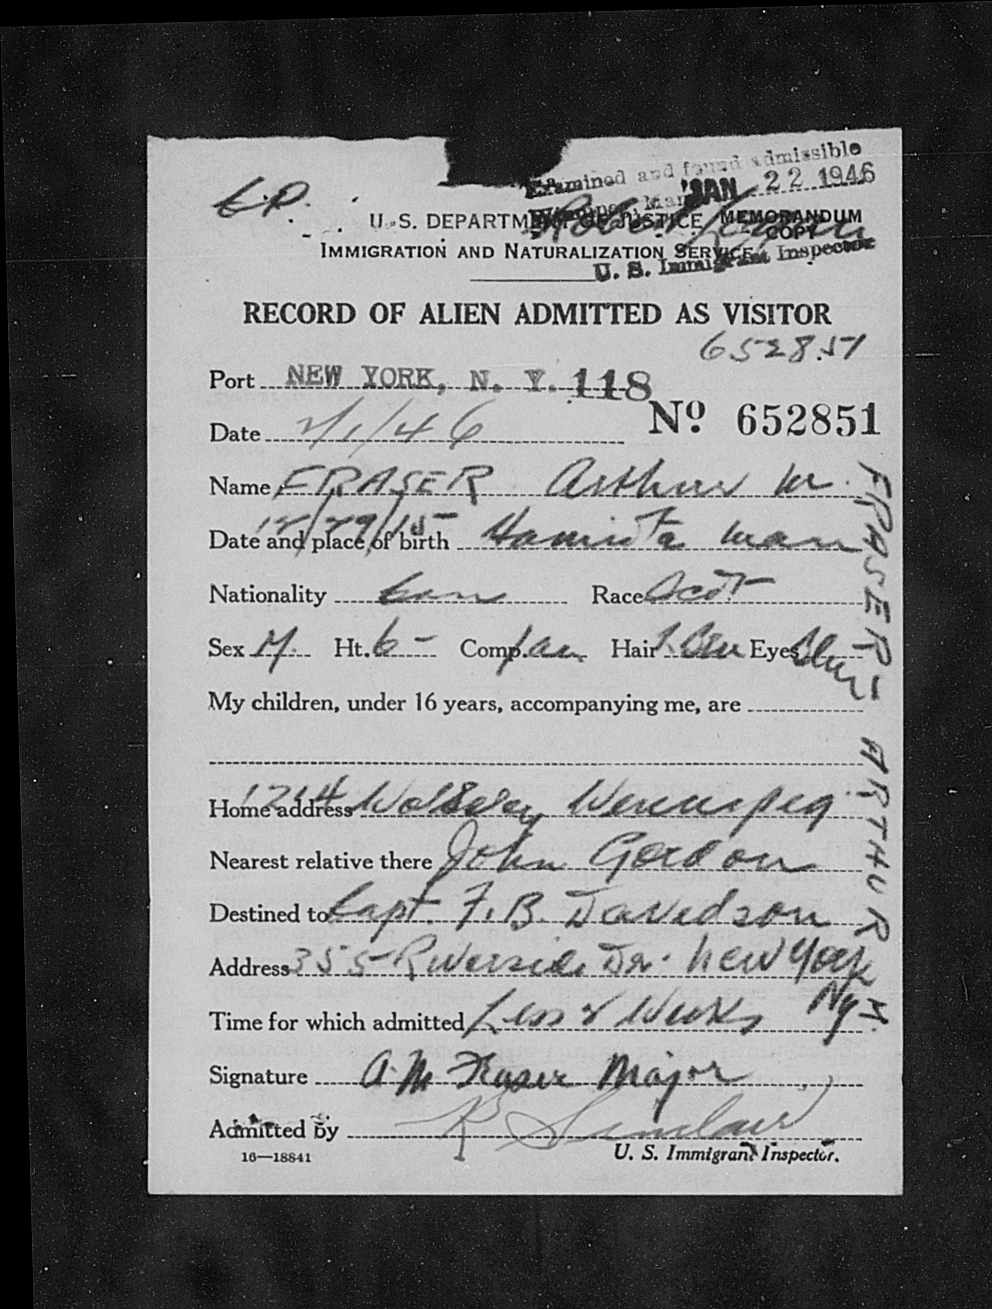 Examined and found admissible
JAN 22 1946
U. S. DEPARTMENT OF JUSTICE MEMORANDUM
COPY
IMMIGRATION AND NATURALIZATION SERVICE
U. S. Immigrant Inspector
RECORD OF ALIEN ADMITTED AS VISITOR
652851
Port NEW YORK, N. Y. 118
No 652851
Date 2/1/46
Name FRASER Arthur M.
12/29/15
Date and place of birth Hamiota Man
Nationality Can Race Scot
Sex M. Ht. 6 - Comp. Hair Eyes Blue
My children, under 16 years, accompanying me, are
Home address 1214 Wolseley Winnipeg
Nearest relative there John Gordon
Destined to Capt. F. B. Davidson
Address 355 Riverside Dr. New York
NY
Time for which admitted Less 2 Weeks
Signature A M Fraser Major
Admitted by Sinclair
16—18841 U. S. Immigrant Inspector.
FRASER ARTHUR M.